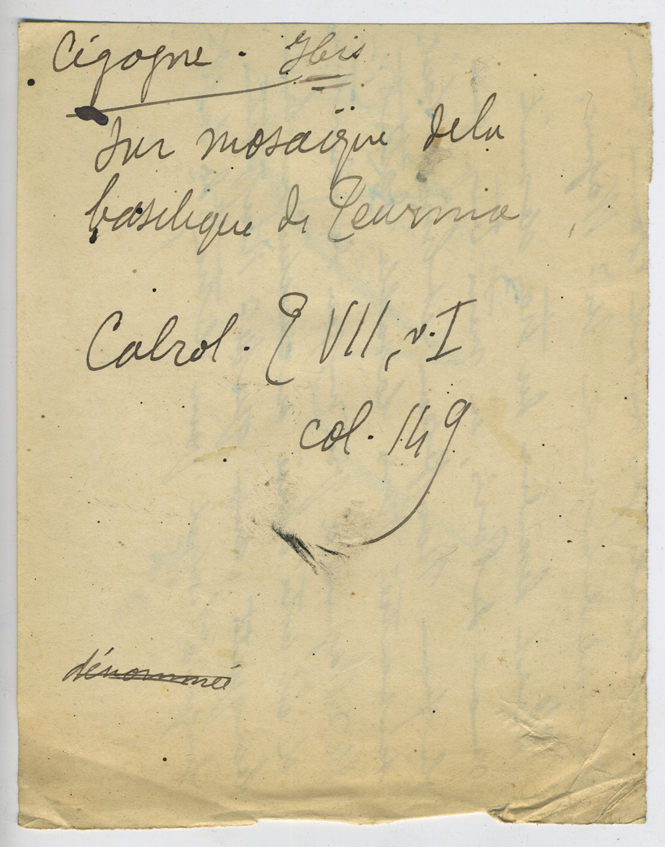 Cigogne . Ibis
sur mosaïque dela
basilique de Teurnia
Cabrol. T VII, v. I
col. 149
dénommée